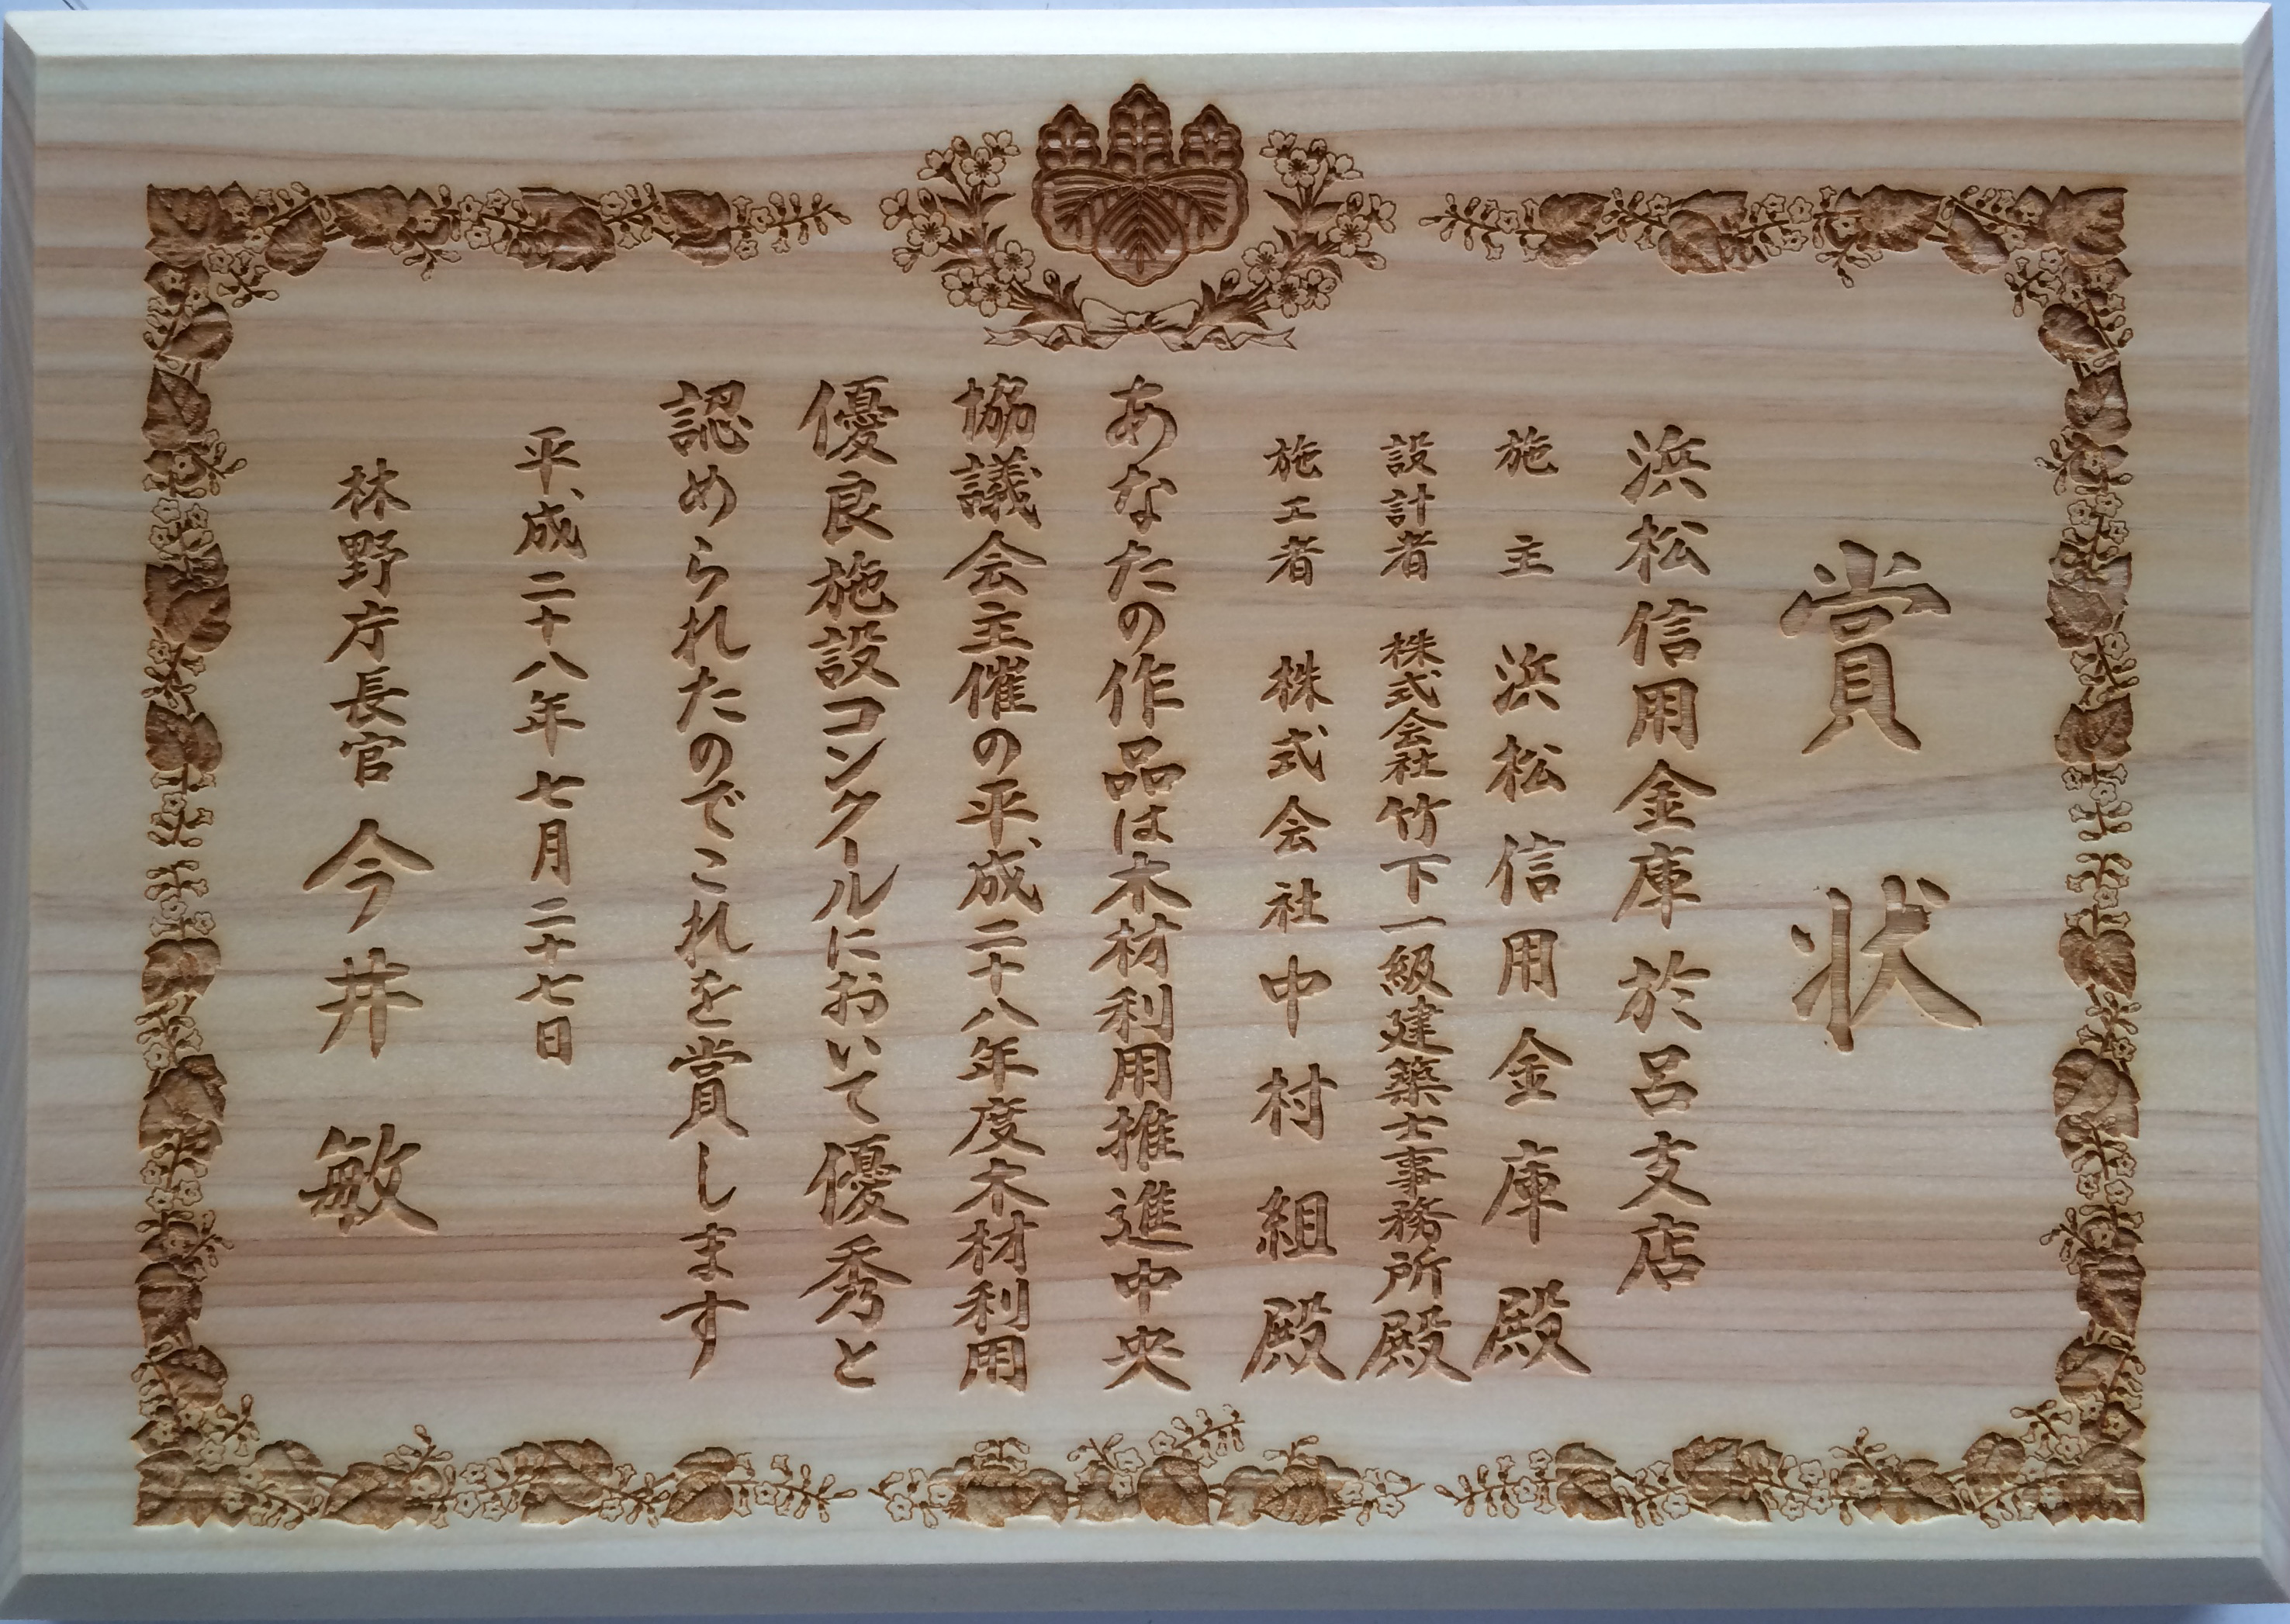 賞状
浜松信用金庫於呂支店
施主 浜松信用金庫殿
設計者 株式会社竹下一級建築士事務所殿
施工者 株式会社中村組殿
あなたの作品は木材利用推進中央
協議会主催の平成二十八年度木材利用
優良施設コンクールにおいて優秀と
認められたのでこれを賞します
平成二十八年七月二十七日
林野庁長官 今井敏